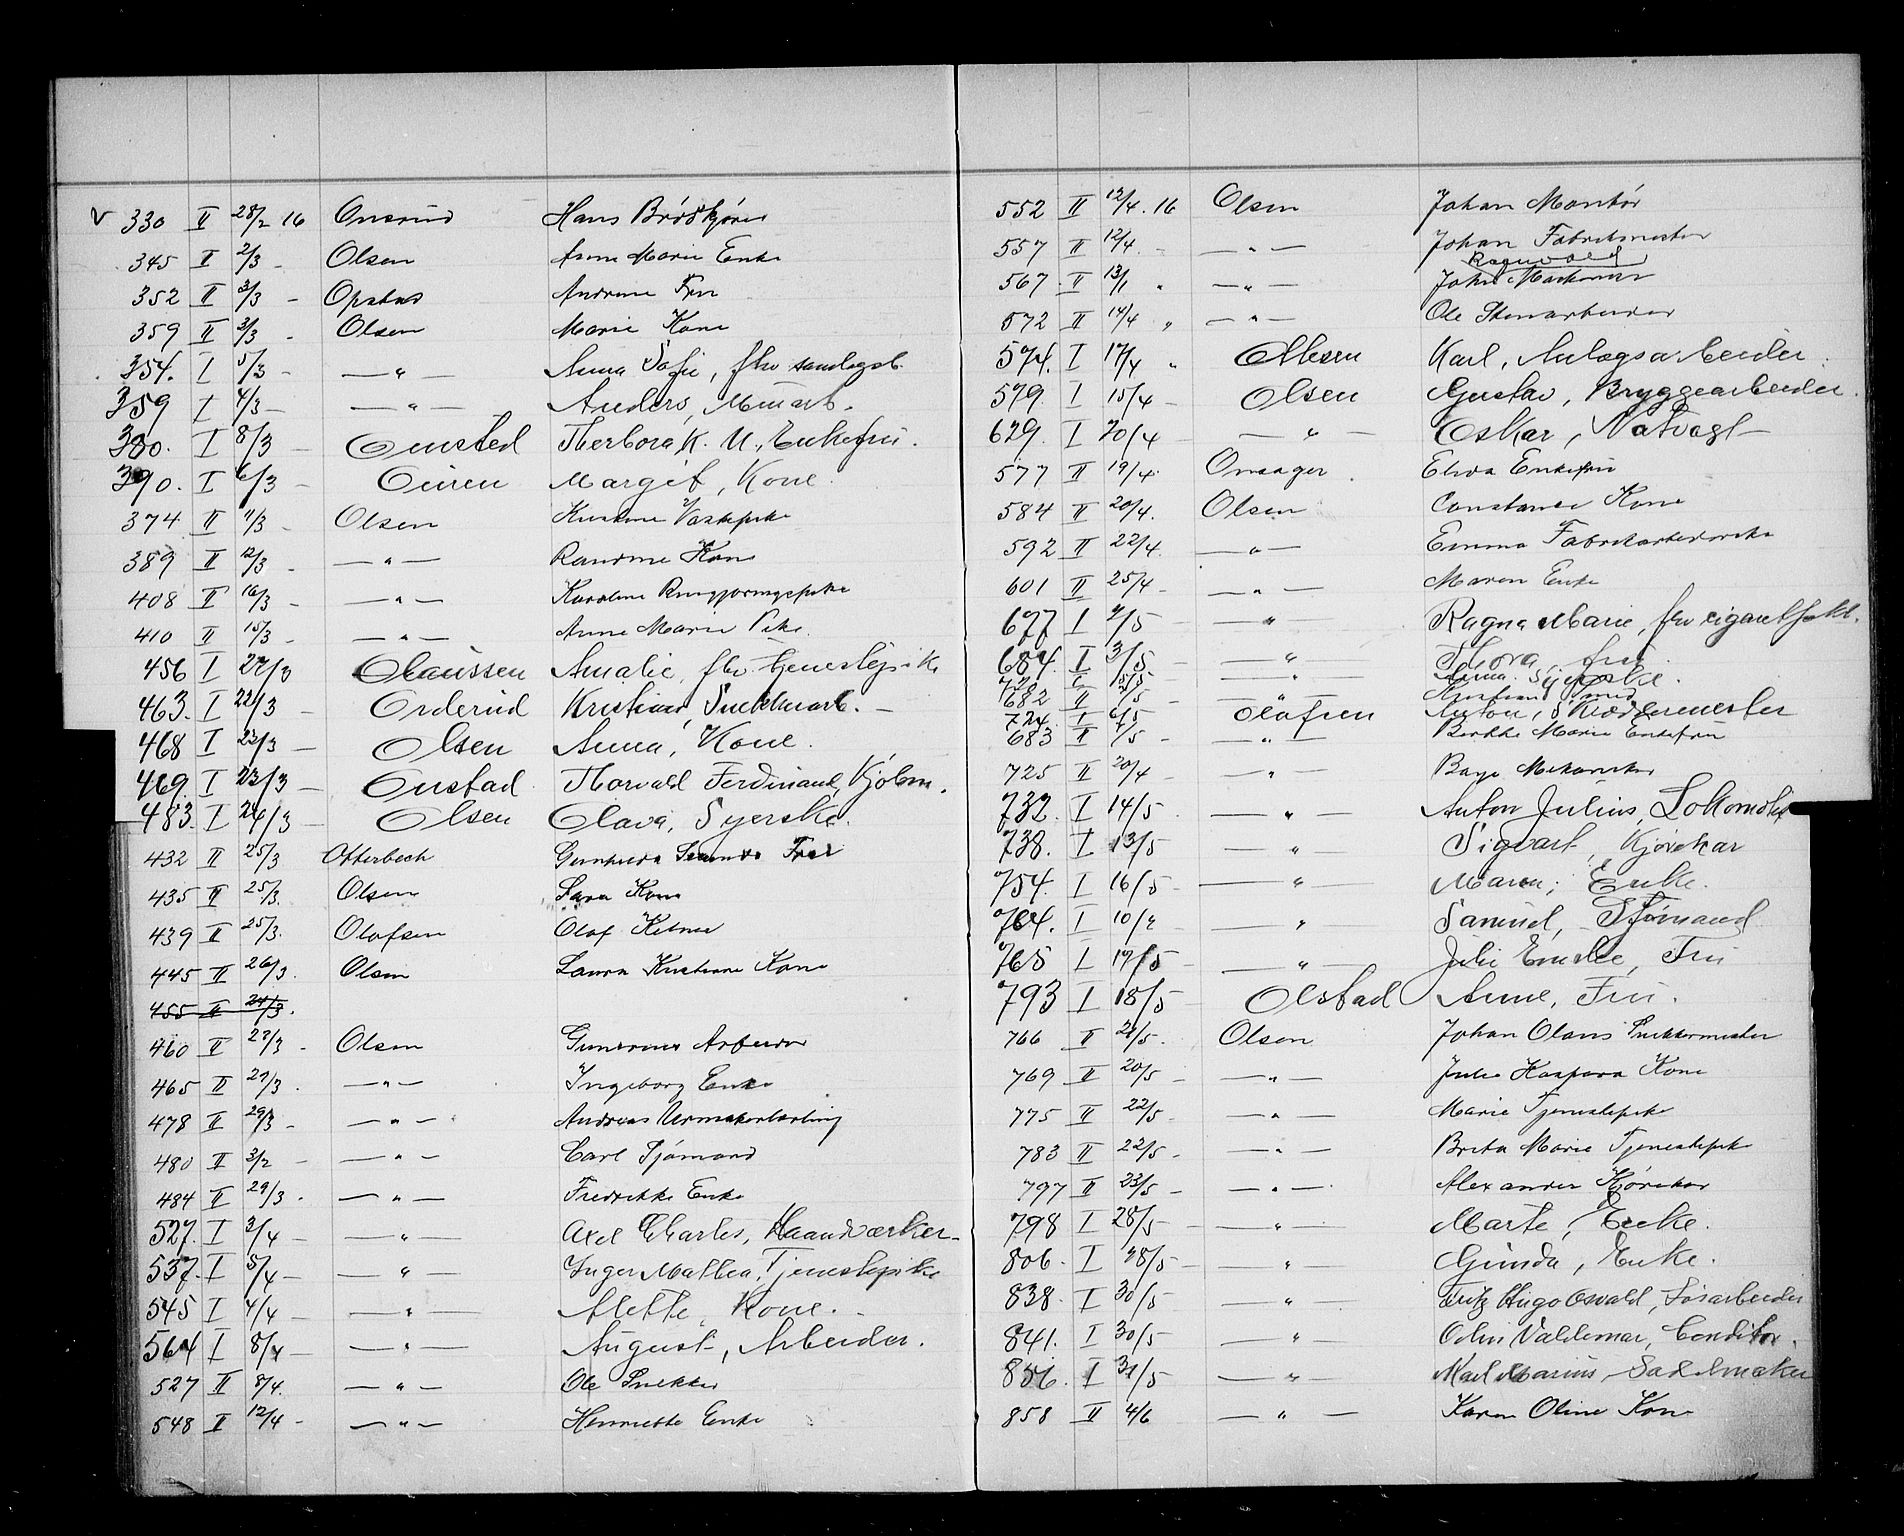 V 330 II 28/2 16 Onsrud Hans Brødkjører
345 II 2/3 - Olsen Anne Marie Enke
352 II 3/3 - Opstad Andrine Fru
359 II 3/3 - Olsen Marie Kone
354. I 5/3 - — " — Anna Sofie, fhv
359 I 4/3 - — " — Anders, Murarb.
380. I 8/3 - K. M., Enkefru.
390. I 6/3 - Margit, Kone.
374 II 11/3 - Olsen Kristine Vaskepike
389 II 12/3 - — " — Randine Kone
408 II 16/3 - — " — Karoline Rengjøringspike
410 II 15/3 - — " — Anne Marie Pike
456 I 22/3 Olaussen Amalie, fhv. tjenestepike
463. I 22/3 Orderud Kristian, Snekkerarb. -
468 I 22/3 - Olsen Anna, Kone.
469. I 23/3 - Onstad Thorvald Ferdinand, Kjøbm.
483. I 24/3 - Olsen Olava, Syerske.
432 II 25/3 Otterbech Fru
435 II 25/3. Olsen Kone
439 II 25/3. Olafsen Olaf Kelner
445 II 26/3. Olsen Laura Kristiane Kone
455 II 24/3.
460 II 27/3 - Olsen Arbeider
465 II 27/3. — " — Ingeborg Enke
478 II 29/3 - — " — Andreas Urmakerlærling
480 II 3/2 - — " — Carl Sjømand
484 II 29/3. — " — Fredrikke Enke
527. I 3/4 - — " — Axel Charles, Haandværker -
537. I 5/4 - — " — Inger Mathea, Tjenestepike
545 I 4/4 - — " — Alette, Kone. -
564 I 8/4 - — " — August, Arbeider.
527 II 8/4. — " — Ole Snekker
548 II 12/4 - — " — Henriette Enke
552 II 12/4 . 16 Olsen Johan Montør
557 II 12/4 - — " — Johan Fabrikmester
Ragnvald
567. II 13/1 " — " — John
572 II 14/4 " — " — Ole Stenarbeider
574. I 17/4 " Olsen Karl, Anlægsarbeider.
579. I 15/4 - Olsen Gustav, Bryggearbeider.
629. I 20/4 — " — Oskar, Natvagt -
577 II 19/4. Omsager Enkefru
584 II 20/4. Olsen Constance Kone
592 II 22/4. — " — Emma Fabrikarbeiderske
601 II 25/4 - — " — Maren Enke
677 I 2/5 - — " — Ragna Marie, fhv
684. I 3/5 - — " — Thora, fru.
Syerske.
682 II /5 - — " — Kristian
724. I 6/5 Olafsen Anton, Skræddermester
683 II /5 - — " — Marie Enkefru
725 II 20/4 - — " —
732. I 14/5 - — " — Anton Julius,
738. I 13/5 — " — Sigvart, Kjørekar
754. I 16/5 - — " — Maren, Enke.
764. I 10/ - — " — Samuel, Sjømand
765 I 19/5 - — " — Julie Emilie, Fru
793 I 18/5 - Olstad Anne, Fru.
766 II 21/5. Olsen Johan Olaus Snekkermester
769 II 20/5 - — " — Julie Kaspara Kone
775 II 22/5 - — " — Marie Tjenestepike
783 II 22/5. — " — Brita Marie Tjenestepike
797 II 23/5 - — " — Alexander Kjørekar
798 I 28/5 - — " — Marte, Enke.
806. I 28/5 - — " — Gunda, Enke.
838. I 30/5 — " — Fritz Hugo Osvald,
841. I 30/5 — " — Valdemar, Conditor.
856. I 31/5 — " — Karl Marius, Sadelmaker
858 II 4/6 — " — Karen Oline Kone